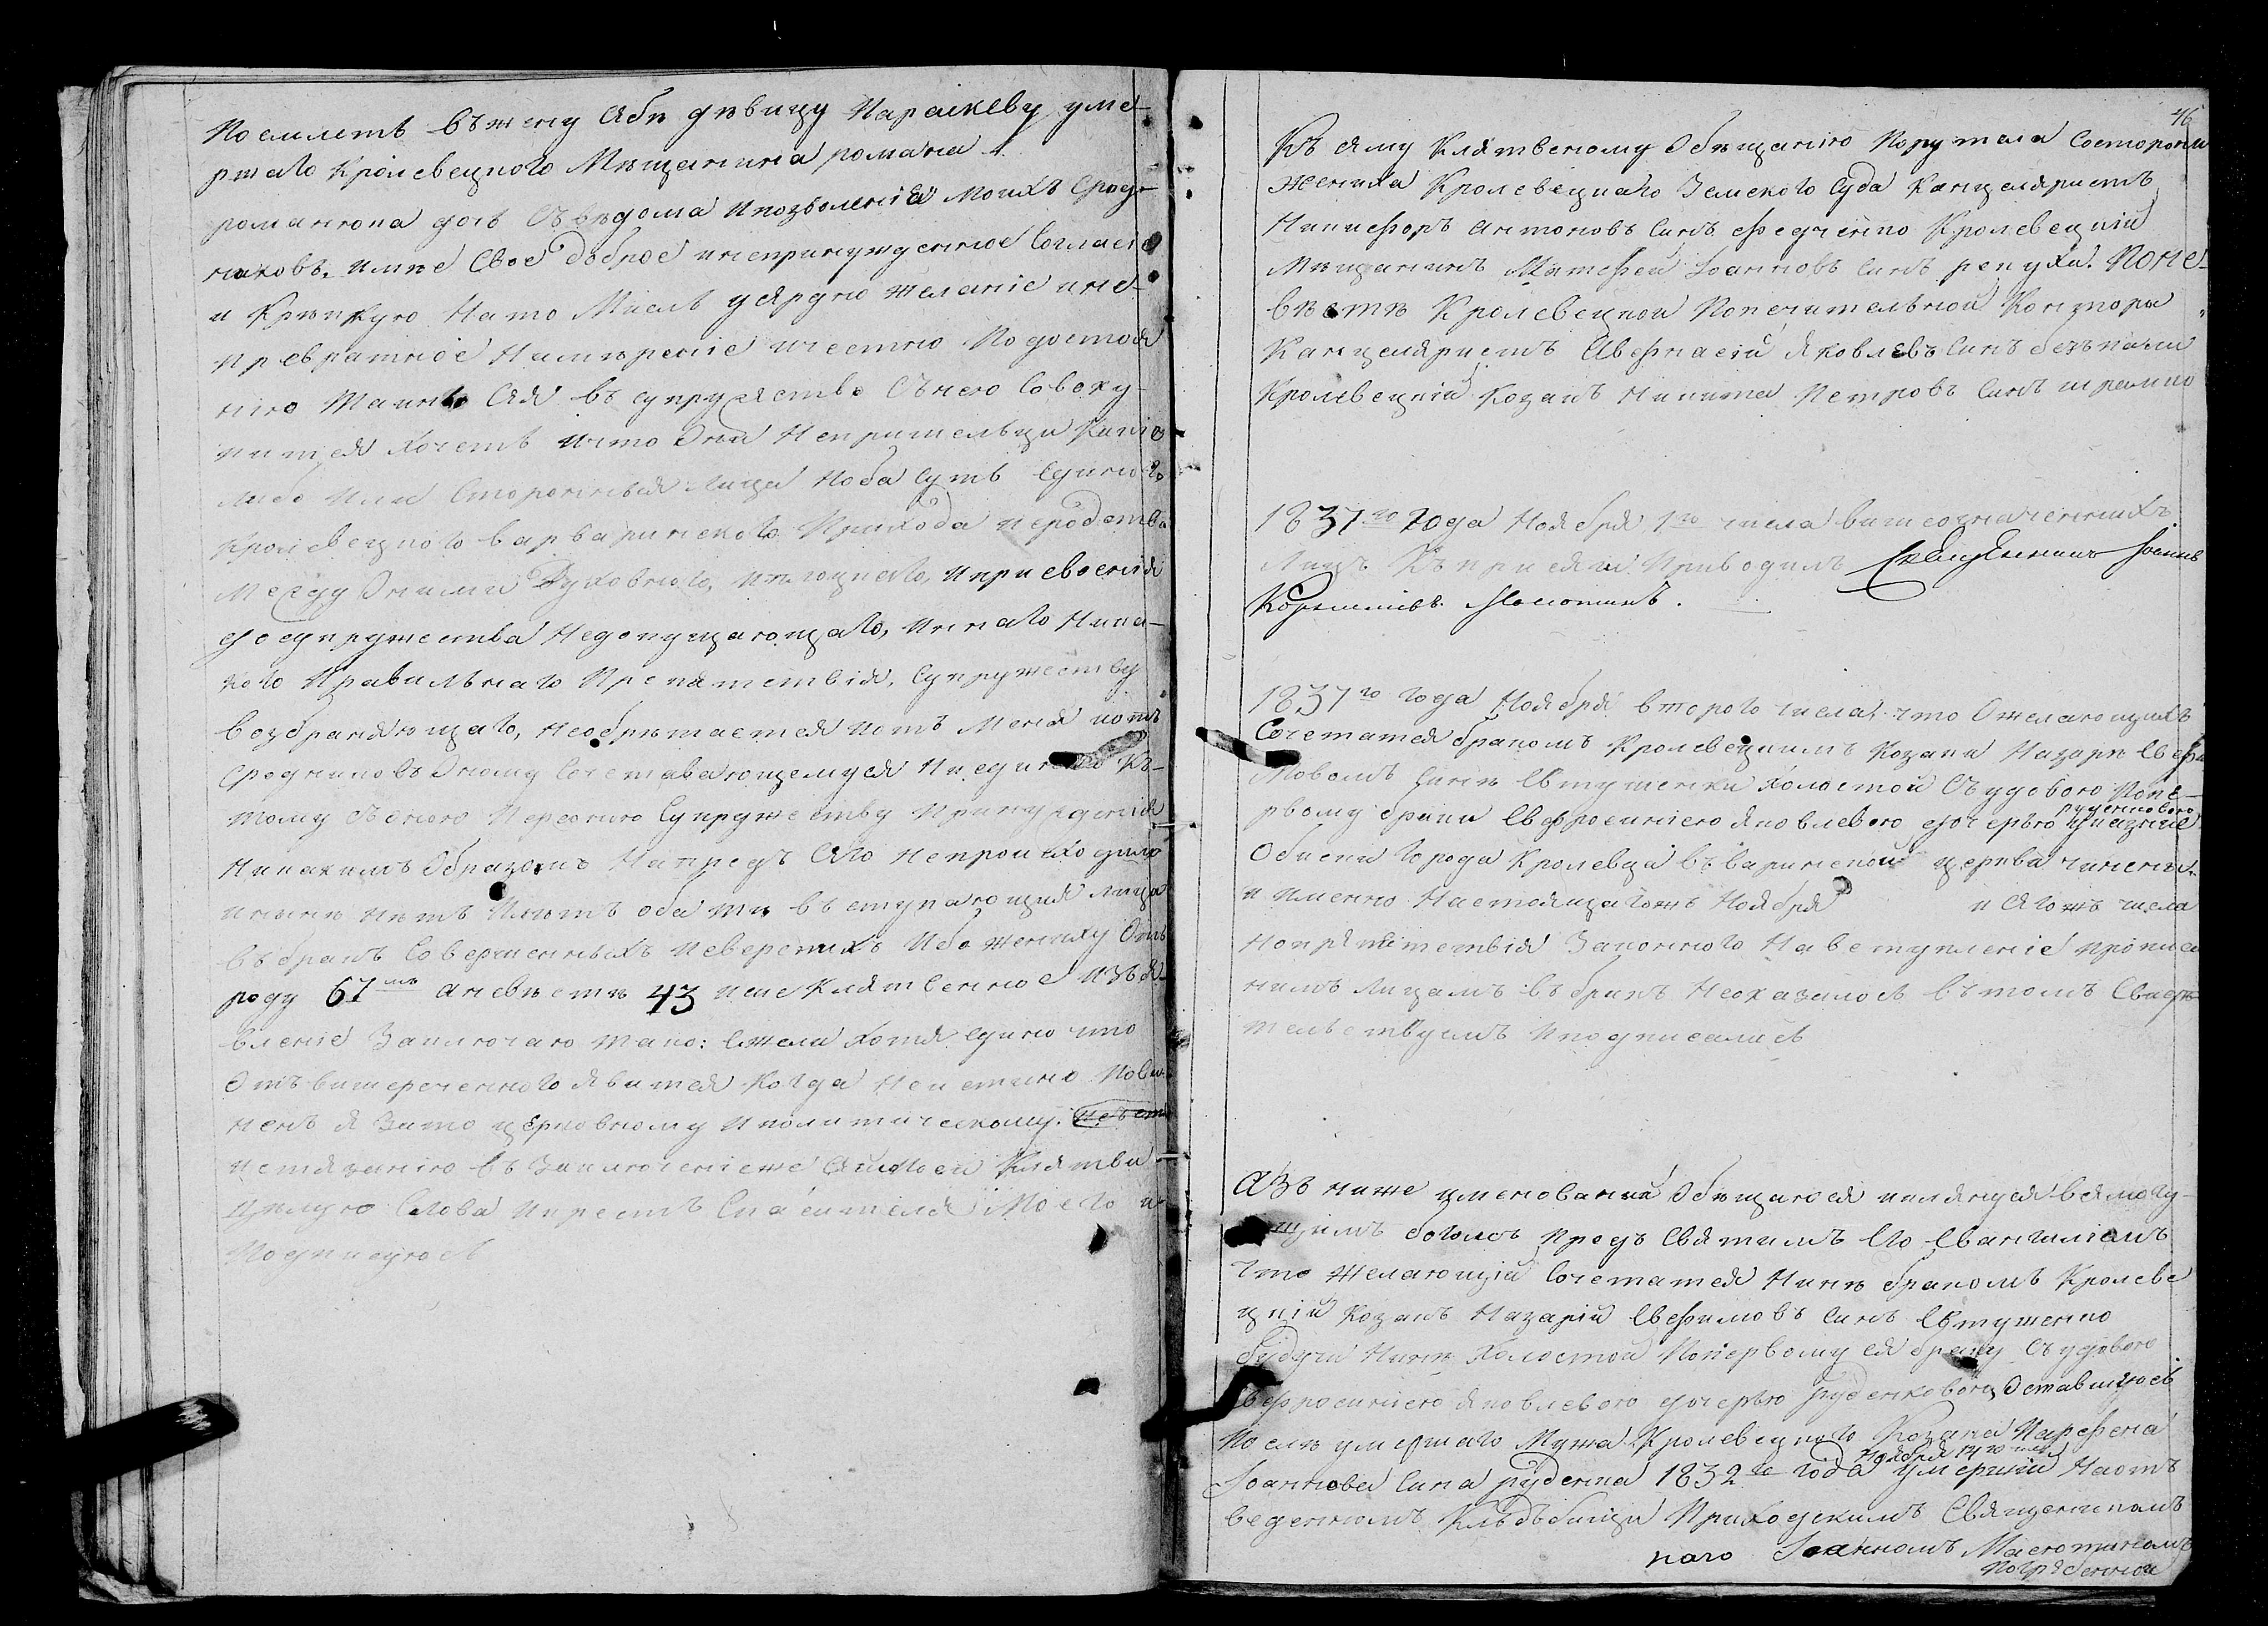 поемлетъ въ жену Себѣ дѣвицу Параскеву уме-
ршаго Кролевецкого Мѣщанина романа
романкова дочь Съ вѣдома и позволенія Моихъ Срод-
никовъ. имѣе Свое доброе инепринужденное Согласіе
и Крѣпкую на то Мисль усердно желаніе ине-
превратное Намѣреніе ичестно по достоя
нію Таинъ Сея въ супружество Съ нею Совоку-
питися хочетъ ичто Они Непришельци Кiи
либо или Сторонныя Лица иоба Суть Единого
Кролевецкого варваринского Прихода иродства
Между Оними Духовного, иплоцкаго, и присвоенія
до супружества недопущающаго, иинаго Ника-
кого Правильнаго Препятствія, Супружеству
возбраняющаго, необрѣтается иотъ Меня иотъ
Сродниковъ Оному Сочетавающемуся Ни единого Къ-
тому съ Оною Персоною Супружеству принужденія
Никакимъ Образомъ Напредъ Сего непроисходило
инынѣ нѣтъ Илѣтъ оба ти вступающия лица
въ бракъ Совершенныхъ иеверстихъ Ибо жениху Отъ
роду 67 аневѣстѣ 43 исие Клятвенное изъя-
вленіе Заключаю тако: Ежели хотя Едино что
Отъ вишереченного явится Когда неистино пови-
ненъ я Зато церковному иполитическому.
истязанію въ Заключеніеже Сеймоей Клятви
цѣлую Слова икрестъ Спасителя Моего и
Подписуюсь
46
Къ Сему Клятвеному Обѣщанію Поручила Состороны
жениха Кролевецкаго Земского Суда Канцеляристъ
Никифоръ Антоновъ Синъ Федченко Кролевецкій
Мѣщанинъ Матфей Іоанновъ Синъ репуха. Поне-
вѣстѣ Кролевецкой Попечительной Конторы
Канцеляристъ Афанасій Яковлевъ Синъ
Кролевецкій Козакъ Никита Петровъ Синъ
1837го года Ноября 1го числа вишеозначенныхъ
Лицъ Къ присяги Приводилъ Священникъ Іоаннъ
1837го года Ноября второго числа, что Ожелающихъ
Сочетатся бракомъ Кролевецкимъ Козаки Назарѣ Евфи
мовомъ Синѣ Евтушенки холостой Съ удовою Попе-
рвому браки Евфросиніею яковлевою дочерью руденковою
Обиски города Кролевца въваринской церкви чинени.
и имено настоящагожъ Ноября и Сегожъ числа
ноприпятствія Законного На вступленіе прописа
нимъ Лицамъ въбракъ Неоказалось въ томъ Свидѣ
тельствуемъ иподписались
Азъ ниже именований Обѣщаюся иклянуся всемогу-
щимъ богомъ предъ Святимъ Его Евангеліемъ
что желающій Сочетатся Нинѣ бракомъ Кролеве
цкій Козакъ Назарій Евфимовъ Синъ Евтушенко
будучи Нинѣ холостой Попервому ея браку Съ удовою
Евфросиніею яковлевою дочерью Руденковою Оставшуюсь
послѣ умершаго Мужа Кролевецкого Козака Парфена
Іоаннова Сина руденка 1832го года Ноября 14го числа умершій Наотъ
веденномъ Кладъбищи Приходскимъ Священникомъ
Іоанномъ
Погребенного